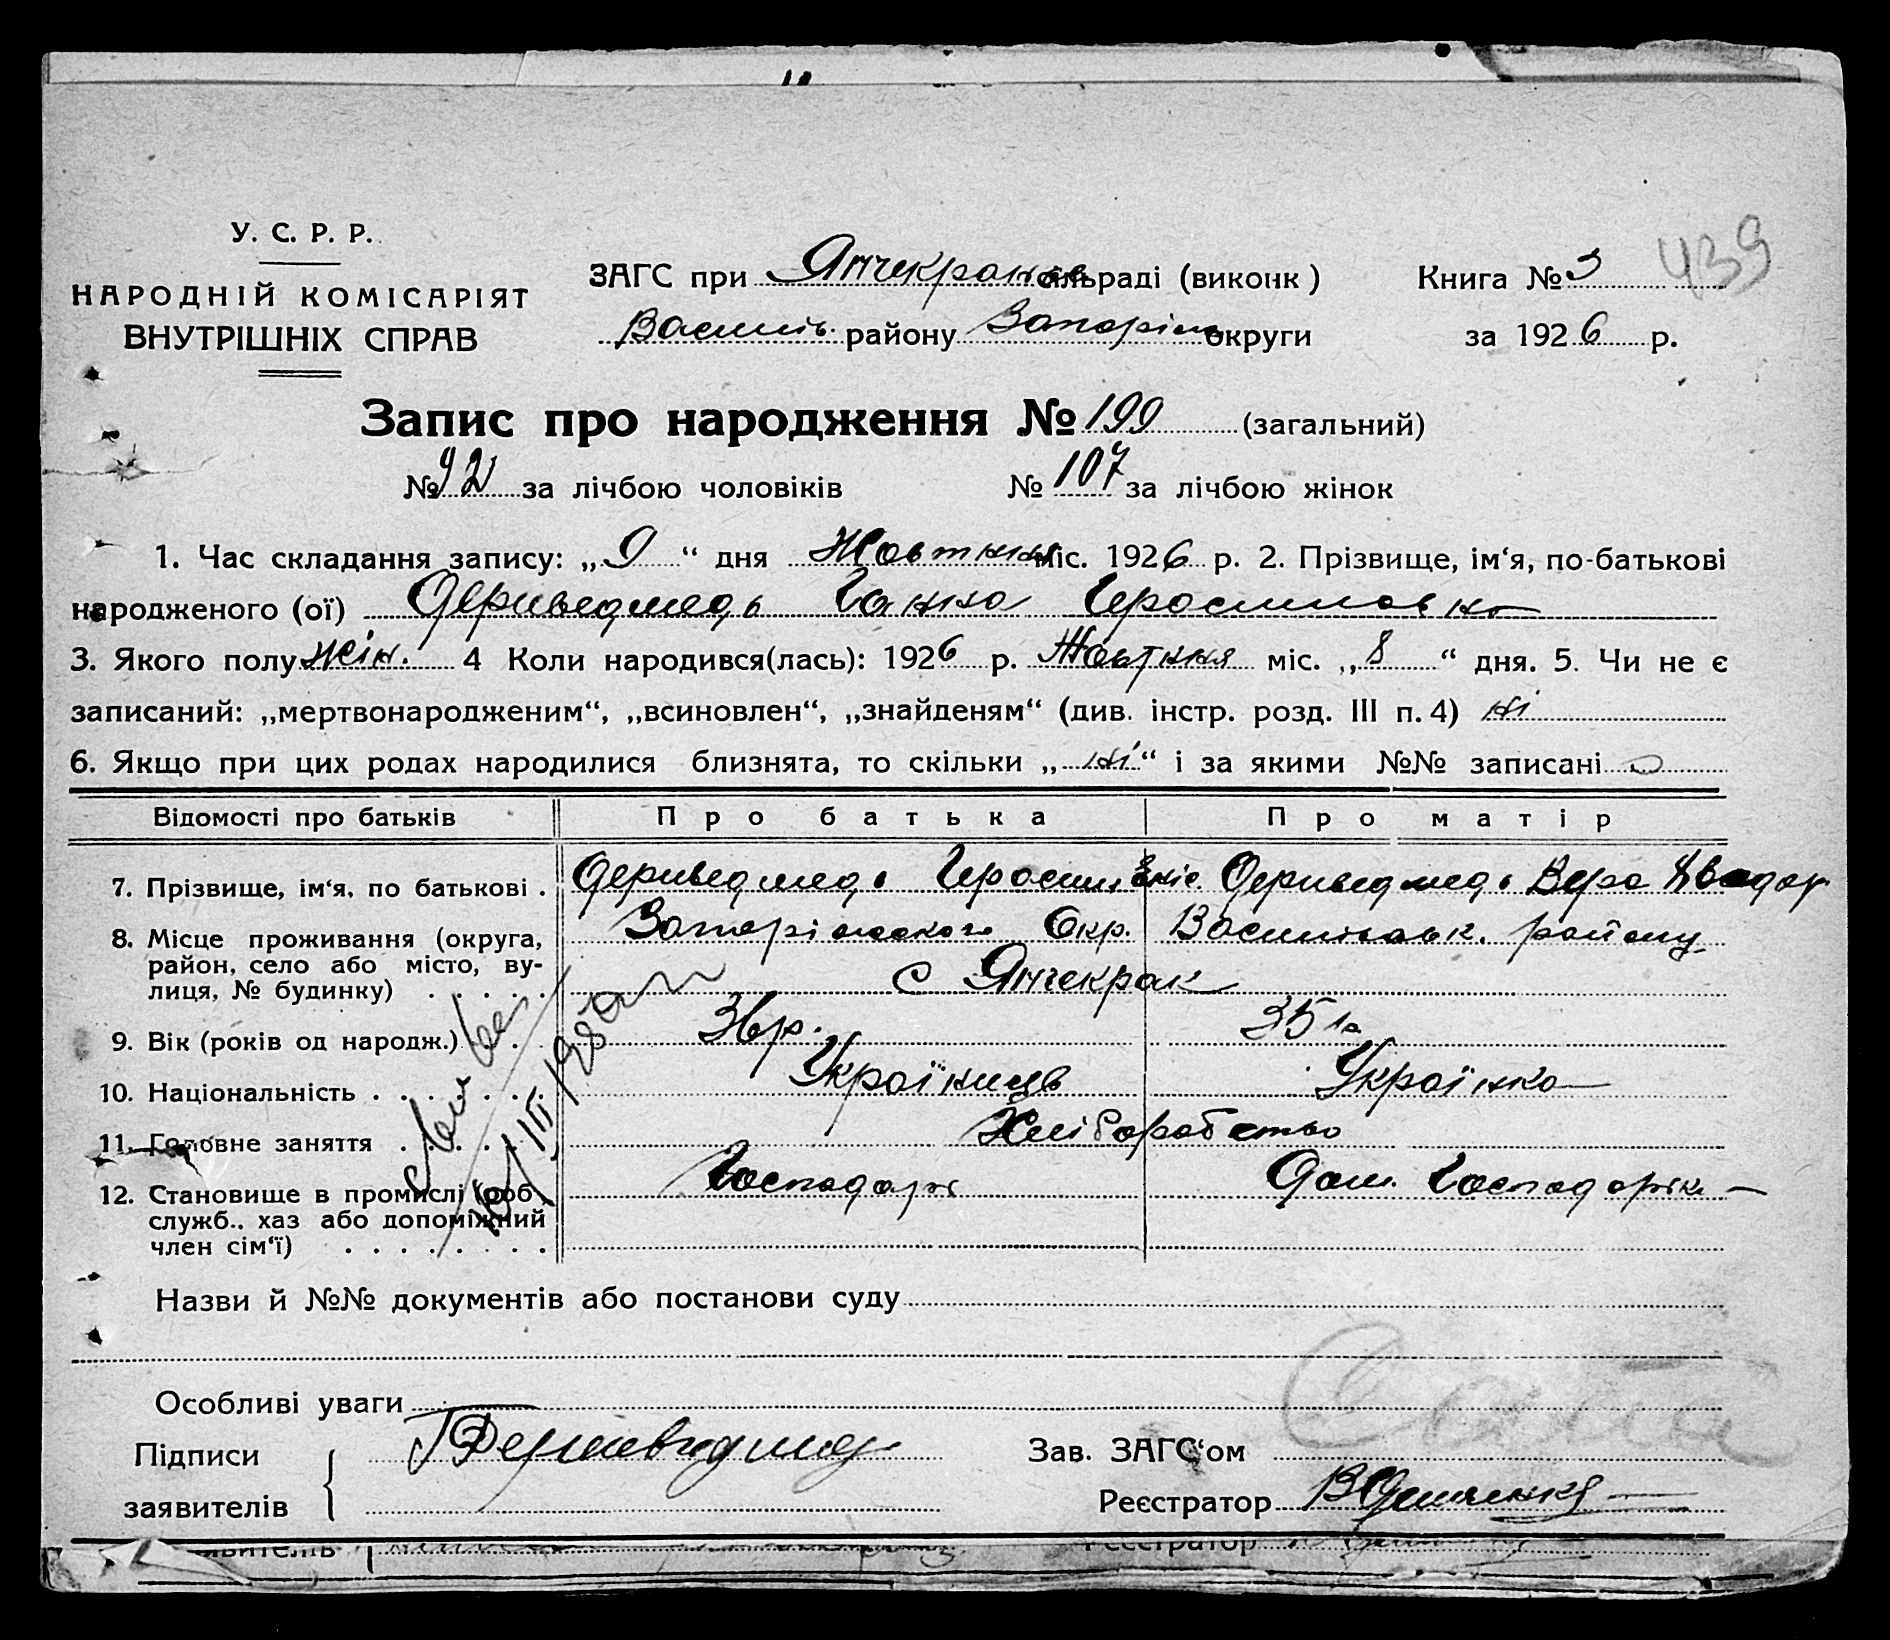 У. С. Р. Р.
НАРОДНІЙ КОМІСАРІЯТ
ВНУТРІШНІХ СПРАВ
ЗАГС при Янчекракс сільраді (виконк)
Василів. району Запоріж округи
Книга № 3 439
за 1926 р.
Запис про народження № 199 (загальний)
№ 92 за лічбою чоловіків № 107 за лічбою жінок
1. Час складання запису: „9“ дня Жовтня міс. 1926 р. 2. Прізвище, ім‘я, по-батькові
народженого (ої) Дериведмедь Ганна Герасимовна
3. Якого полу жін. 4 Коли народився(лась): 1926 р. Жовтня міс. „8“ дня. 5. Чи не є
записаний: „мертвонародженим“, „всиновлен“, „знайденям“ (див. інстр. розд. III п. 4) ні
6. Якщо при цих родах народилися близнята, то скільки „ні“ і за якими №№ записані
Відомості про батьків Про батька Про матір
7. Прізвище, ім‘я, по батькові . Дериведмедь Герасим Дериведмедь Вера
8. Місце проживання (округа,
район, село або місто, ву-
лиця, № будинку) . . . . . Запоріжского Окр. Васильвськ. району
с Янчекрак
9. Вік (років од народж.) . . 36 р. 35
10. Національність . . . . . . Українець Українка
11. Головне заняття . . . . . . Хліборобство
12. Становище в промислі (роб.,
служб., хаз або допоміжний
член сім‘ї) . . . . . . . . Господарь Дом. Господарка
16/III
Назви й №№ документів або постанови суду
Особливі уваги
Підписи
заявителів Дериведмедь
Зав. ЗАГС‘ом
Реєстратор
заявителів Реєстратор